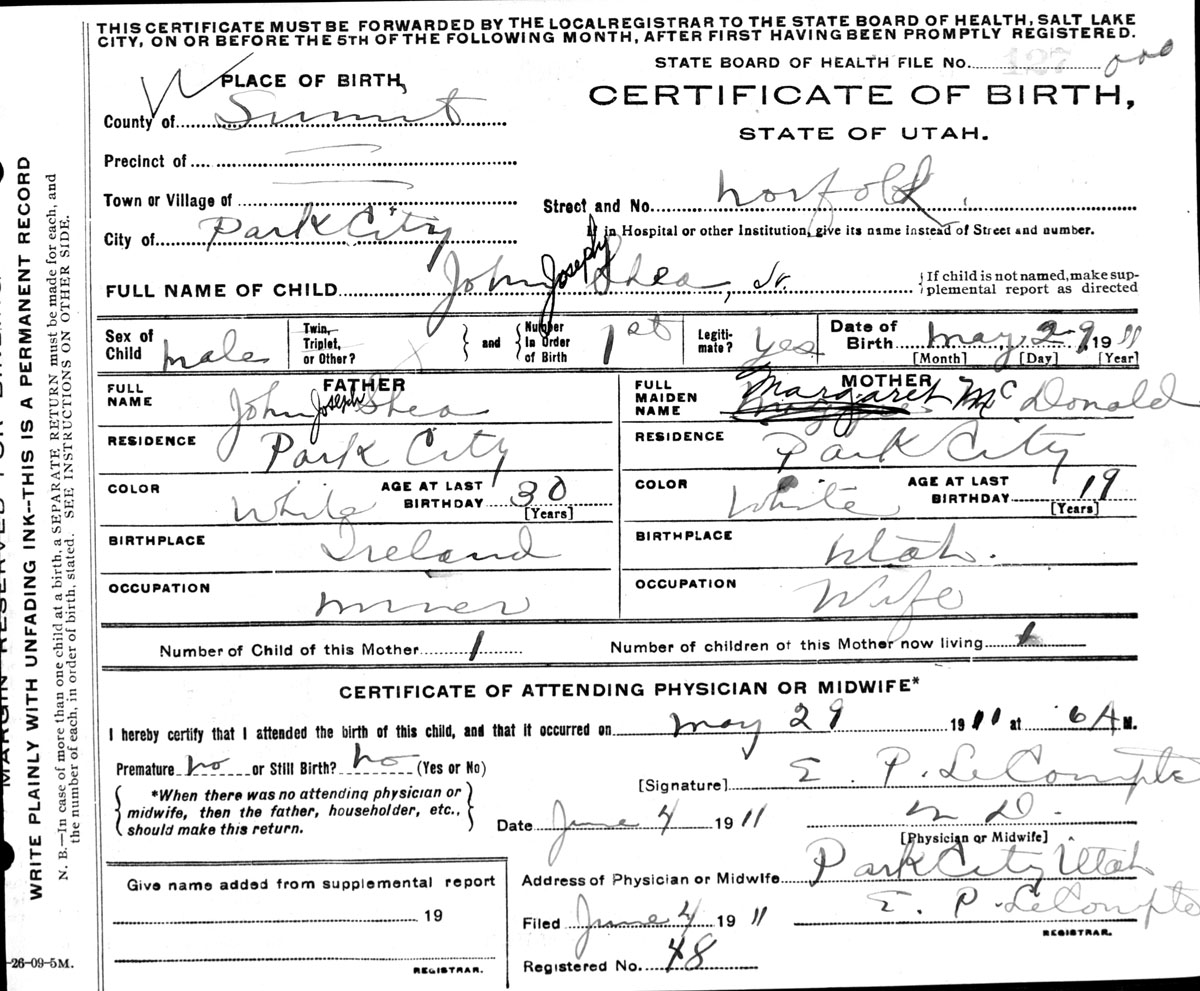 THIS CERTIFICATE MUST BE FORWARDED BY THE LOCAL REGISTRAR TO THE STATE BOARD OF HEALTH, SALT LAKE
CITY, ON OR BEFORE THE 5TH OF THE FOLLOWING MONTH, AFTER FIRST HAVING BEEN PROMPTLY REGISTERED.
STATE BOARD OF HEALTH FILE No. 127
PLACE OF BIRTH,
CERTIFICATE OF BIRTH,
County of Summit
STATE OF UTAH.
Precinct of
Town or Village of
Street and No. Norfolk
City of Park City
If in Hospital or other Institution, give its name instead of Street and number.
FULL NAME OF CHILD John Joseph Shea, Jr.
If child is not named, make sup-
plemental report as directed
Sex of Child male
Twin, Triplet, or Other?
and
Number In Order of Birth 1st
Legiti-mate? yes
Date of Birth May 29 1911
[Month] [Day] [Year]
FATHER
FULL NAME John Joseph Shea
MOTHER
FULL MAIDEN NAME Margaret McDonald
RESIDENCE Park City
RESIDENCE Park City
COLOR White
AGE AT LAST BIRTHDAY 30
[Years]
COLOR White
AGE AT LAST BIRTHDAY 19
[Years]
BIRTHPLACE Ireland
BIRTHPLACE Utah.
OCCUPATION miner
OCCUPATION Wife
Number of Child of this Mother 1
Number of children of this Mother now living 1
CERTIFICATE OF ATTENDING PHYSICIAN OR MIDWIFE*
I hereby certify that I attended the birth of this child, and that it occurred on May 29 1911 at 6 A M.
Premature no or Still Birth? no (Yes or No)
[Signature] E. P. LeCompte
*When there was no attending physician or
midwife, then the father, householder, etc.,
should make this return.
Date June 4 1911
M D.
[Physician or Midwife]
Address of Physician or Midwife Park City Utah
Give name added from supplemental report
19
REGISTRAR.
Filed June 4 1911
E. P. LeCompte
REGISTRAR.
Registered No. 48
-26-09-5M.
MARGIN RESERVED FOR BINDING
WRITE PLAINLY WITH UNFADING INK--THIS IS A PERMANENT RECORD
N. B.—In case of more than one child at a birth, a SEPARATE RETURN must be made for each, and
the number of each, in order of birth, stated. SEE INSTRUCTIONS ON OTHER SIDE.